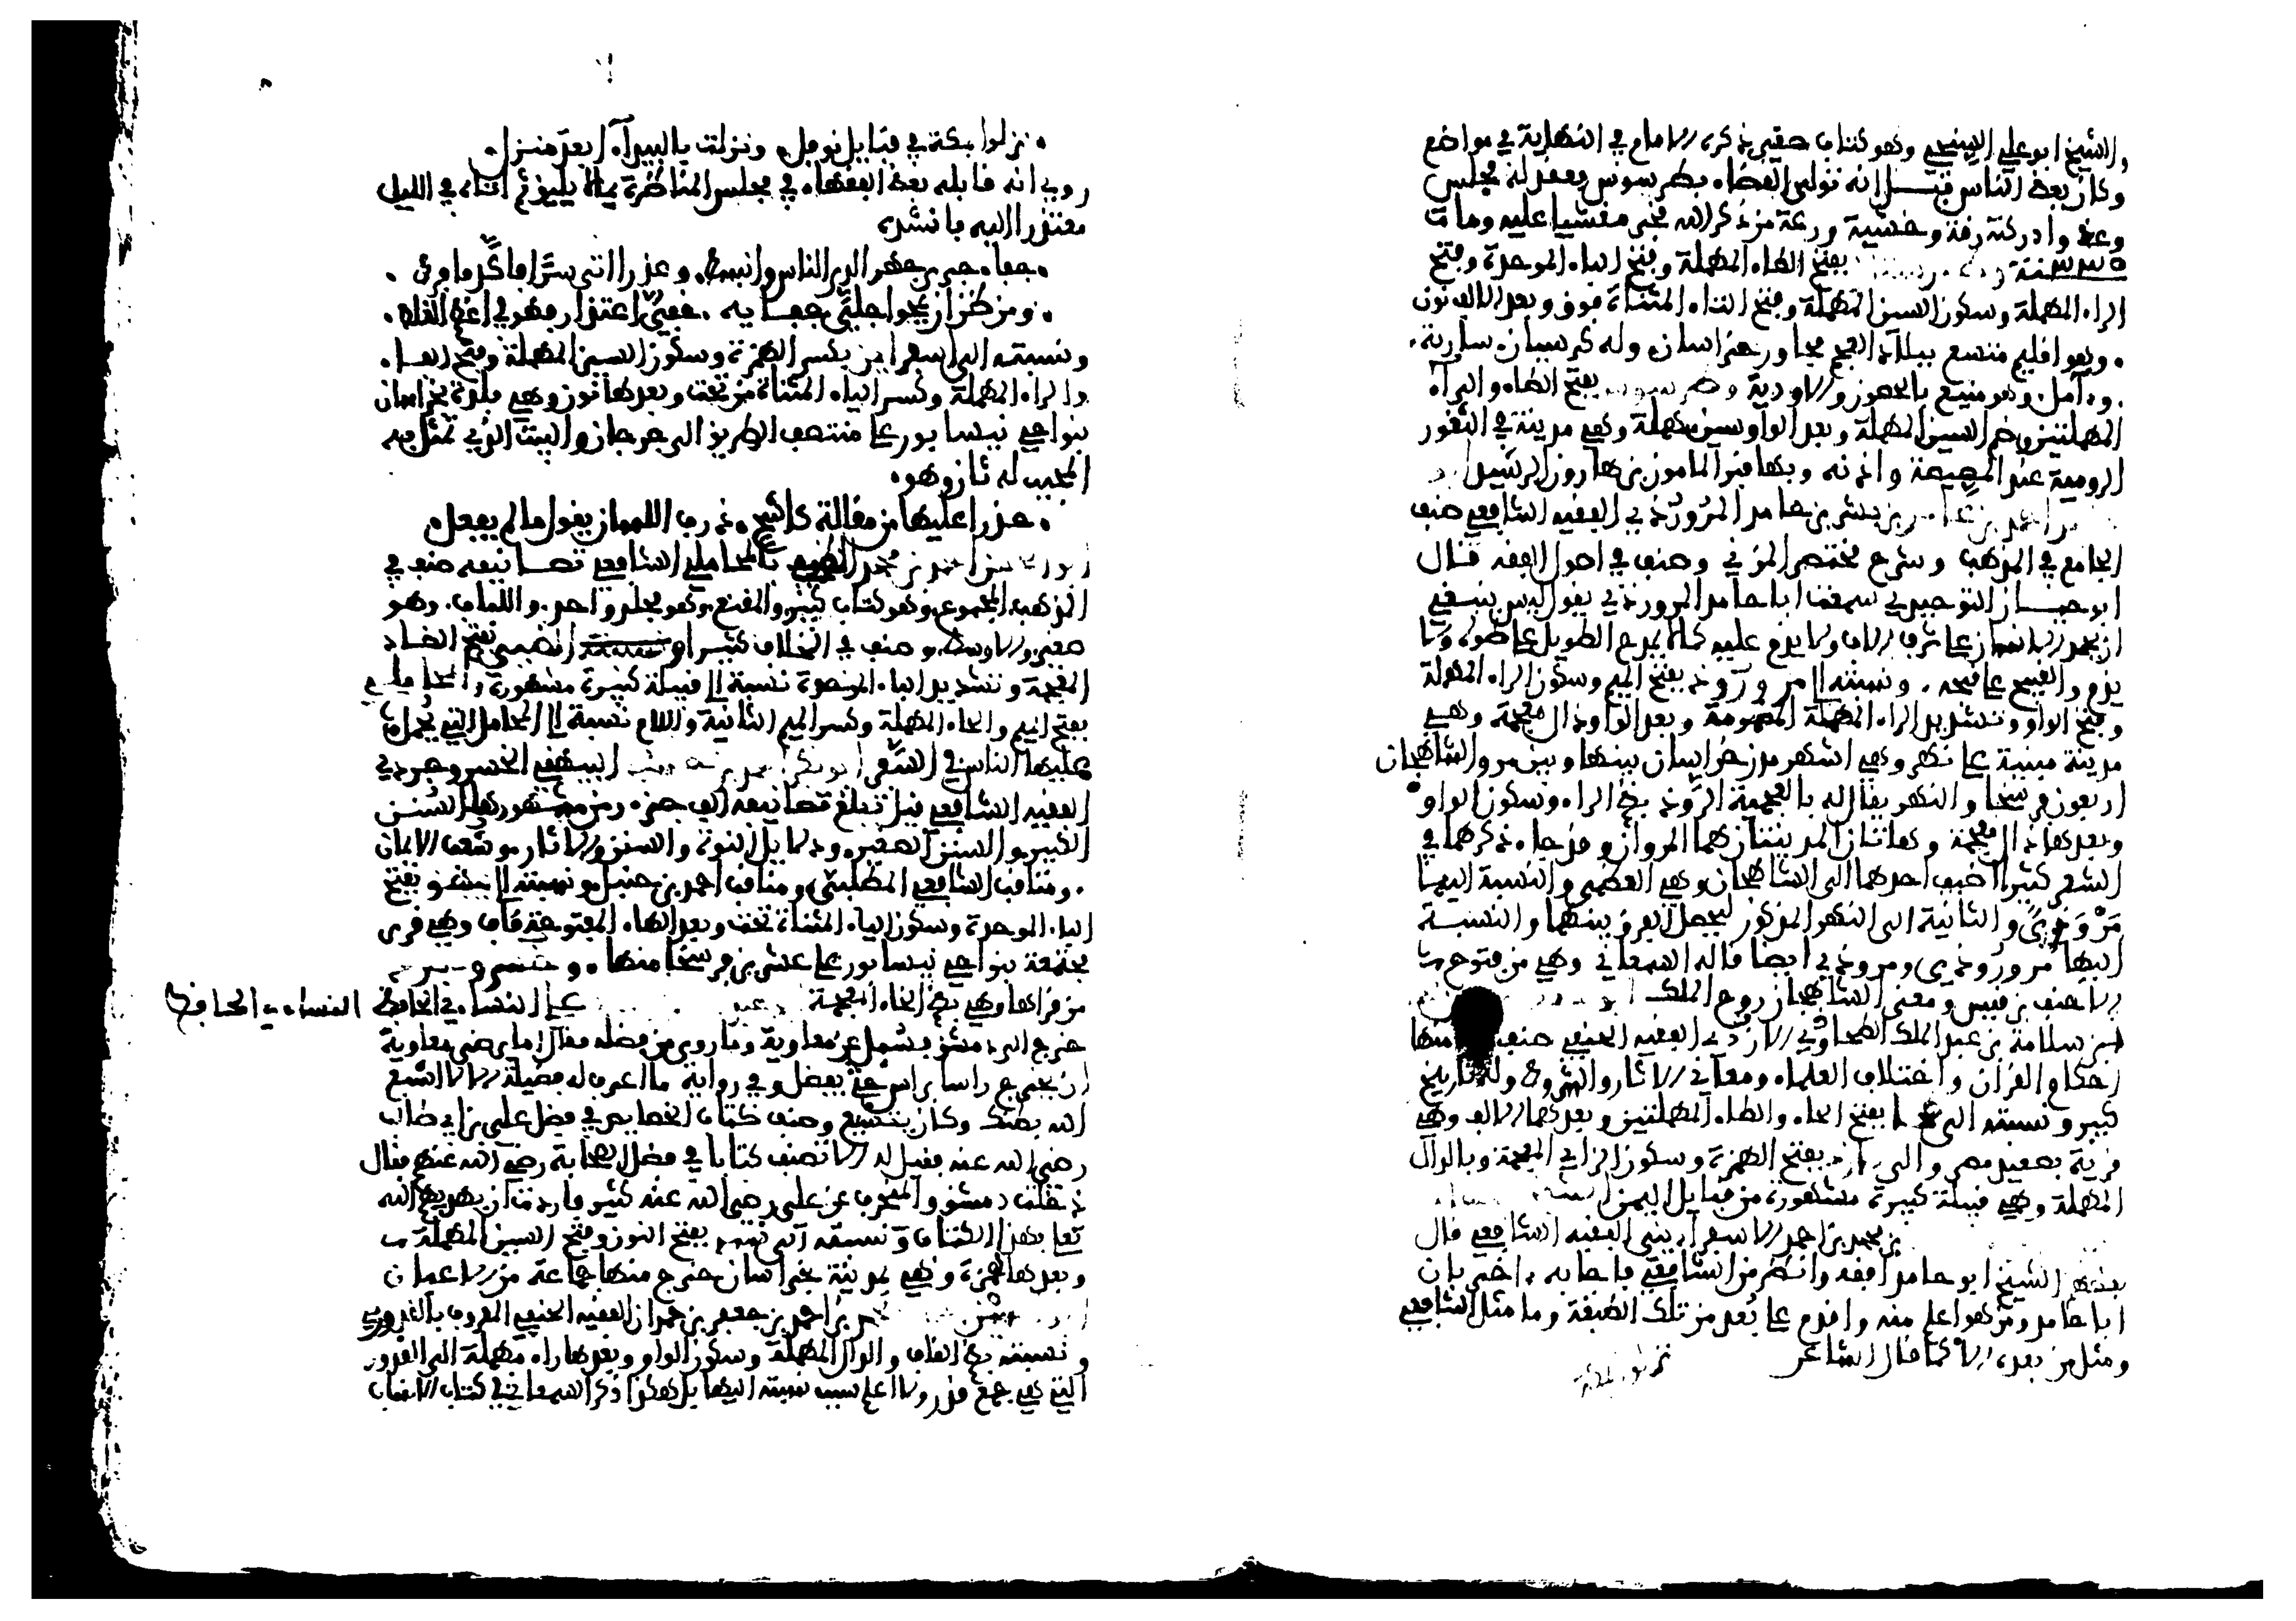 والشيخ ابو علي السنجي وهو كتاب صغير يذكره الامام في النهاية في مواضع
وكان يعظ الناس قيل انه تولى القضاء بطرسوس فعقد له مجلس
وعظ وادركته رقة وخشية وروعة من ذكر الله فخر مغشيا عليه ومات
سنة ٣٣٥ بفتح الطاء المهملة وفتح الباء الموحدة وفتح
الراء المهملة وسكون السين المهملة وفتح التاء المثناة فوق وبعد الالف نون
وهو اقليم متسع ببلاد العجم مجاور خراسان وله كرسيان سارية
وءامل وهو منيع بالحصون والاودية بفتح الطاء والراء
المهملتين وضم السين المهملة وبعد الواو سين مهملة وهي مدينة في الثغور
الرومية عند المصيصة واذنه وبها قبر المامون بن هارون الرشيد
بن بشر بن حامد المروروذي الفقيه الشافعي صنف
الجامع في المذهب وشرح مختصر المزني وصنف في اصول الفقه قال
ابو حيان التوحيدي سمعت ابا حامد المروروذي يقول ليس ينبغي
ان يحمد الانسان على شرف الاب ولا يذم عليه كما لا يمدح الطويل على طوله ولا
يذم القبيح على قبحه ونسبته الى مروروذ بفتح الميم وسكون الراء المهملة
وفتح الواو وتشديد الراء المهملة المضمومة وبعد الواو ذال معجمة وهي
مدينة مبنية على نهر وهي اشهر مدن خراسان بينها وبين مرو الشاهجان
اربعون فرسخا والنهر يقال له بالعجمية الروذ بضم الراء وسكون الواو
وبعدها ذال معجمة وهاتان المدينتان هما المروان وقد جاء ذكرهما في
الشعر كثيرا اضيف احدهما الى الشاهجان وهي العظمى والنسبة اليها
مروزي والثانية الى النهر المذكور ليحصل الفرق بينهما والنسبة
اليها مروروذي ومروذي ايضا قاله السمعاني وهي من فتوح
الاحنف بن قيس ومعنى الشاهجان روح الملك
بن سلامة بن عبد الملك الطحاوي الازدي الفقيه الحنفي صنف منها
احكام القران واختلاف العلماء ومعاني الاثار والشروط وله تاريخ
كبير ونسبته الى بفتح الحاء والطاء المهملتين وبعدهما الالف وهي
قرية بصعيد مصر والى بفتح الهمزة وسكون الزاي المعجمة وبالدال
المهملة وهي قبيلة كبيرة مشهورة من قبايل اليمن
بن محمد بن احمد الاسفرايني الفقيه الشافعي قال
بعضهم الشيخ ابو حامد افقه وانظر من الشافعي فاجابه بان
ابا حامد ومن هو اعلم منه واقدم على بعد من تلك الطبقة وما مثل الشافعي
ومثل من بعده الا كما قال الشاعر
نزلوا بمكة
نزلوا بمكة في قبايل نوفل ونزلت بالبيداء ابعد منزل
روي انه قابله بعض الفقهاء في مجلس المناظرة بما لا يليق ثم اتاه في الليل
معتذرا اليه فانشده
جفاء جرى جهرا لدى الناس وانبسط وعذر اتى سرا فاكد ما فرط
ومن ظن ان يمحو جلي جفايه خفي اعتذار فهو في اعظم الغلط
ونسبته الى اسفراين بكسر الهمزة وسكون السين المهملة وفتح الفاء
والراء المهملة وكسر الياء المثناة من تحت وبعدها نون وهي بلدة بخراسان
بنواحي نيسابور على منتصف الطريق الى جرجان والبيت الذي تمثل به
المجيب له ثان وهو
حذرا عليها من مقالة كاشح ذرب اللسان يقول ما لم يفعل
بن محمد الضبي المحاملي الشافعي تصانيفه صنف في
المذهب المجموع وهو كتاب كبير والمقنع وهو مجلد واحد واللباب وهو
صغير والاوسط وصنف في الخلاف كثيرا الضبي بفتح الضاد
المعجمة وتشديد الباء الموحدة نسبة الى قبيلة كبيرة مشهورة والمحاملي
بفتح الميم والحاء المهملة وكسر الميم الثانية واللام نسبة الى المحامل التي يحمل
عليها الناس في السفر البيهقي الخسروجردي
الفقيه الشافعي قيل تبلغ تصانيفه الف جزء ومن مشهورها السنن
الكبير والسنن الصغير ودلايل النبوة والسنن والاثار وشعب الايمان
ومناقب الشافعي المطلبي ومناقب احمد بن حنبل ونسبته الى بيهق بفتح
الباء الموحدة وسكون الياء المثناة تحت وبعد الهاء المفتوحة قاف وهي قرى
مجتمعة بنواحي نيسابور على عشرين فرسخا منها
من قراها وهي بضم الخاء المعجمة علي النساءي الحافظ
النساءي الحافظ
خرج الى دمشق فسئل عن معاوية وما روي من فضله فقال اما يرضى معاوية
ان يخرج راسا براس حتى يفضل وفي رواية ما اعرف له فضيلة الا لا اشبع
الله بطنك وكان يتشيع وصنف كتاب الخصايص في فضل علي بن ابي طالب
رضي الله عنه فقيل له الا تصنف كتابا في فضل الصحابة رضي الله عنهم فقال
دخلت دمشق والمنحرف عن علي رضي الله عنه كثير فاردت ان يهديهم الله
تعالى بهذا الكتاب ونسبته الى بفتح النون وفتح السين المهملة
وبعدها همزة وهي مدينة بخراسان خرج منها جماعة من الاعيان
بن احمد بن جعفر بن حمدان الفقيه الحنفي المعروف بالقدوري
ونسبته بضم القاف والدال المهملة وسكون الواو وبعدها راء مهملة الى القدور
التي هي جمع قدر ولا اعلم سبب نسبته اليها بل هكذا ذكر السمعاني في كتاب الانساب